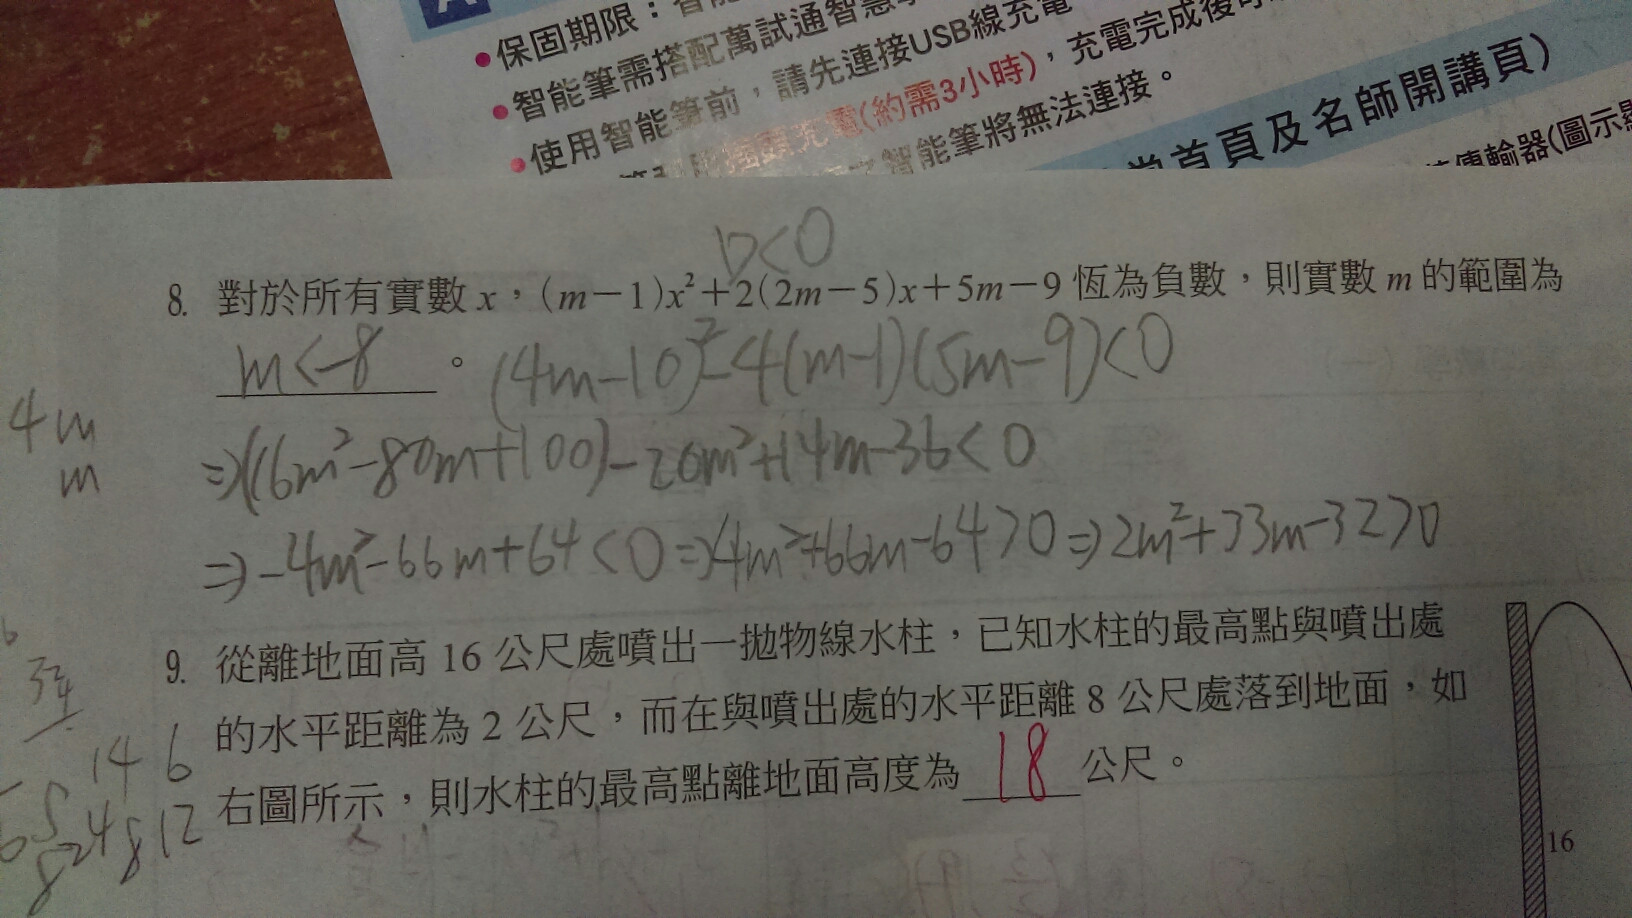 保固期限：智能
智能筆需搭配萬試通智慧
使用智能筆前，請先連接USB線充電
(約需3小時)，充電完成後
智能筆將無法連接。
首頁及名師開講頁)
傳輸器(圖示
D<0
8. 對於所有實數 x，(m－1)x²＋2(2m－5)x＋5m－9 恆為負數，則實數 m 的範圍為
m<-8 。 (4m-10)²-4(m-1)(5m-9)<0
4m
m
⇒(16m²-80m+100)-20m²+14m-36<0
⇒-4m²-66m+64<0⇒4m²+66m-64>0⇒2m²+33m-32>0
9. 從離地面高 16 公尺處噴出一拋物線水柱，已知水柱的最高點與噴出處
的水平距離為 2 公尺，而在與噴出處的水平距離 8 公尺處落到地面，如
右圖所示，則水柱的最高點離地面高度為 18 公尺。
14 6
5
8 24 8 12
16